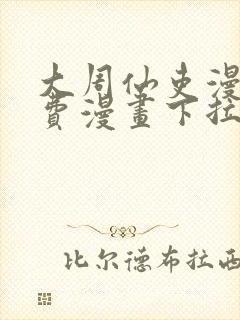 大周仙吏漫
費漫畫下拉
比尔德布拉西